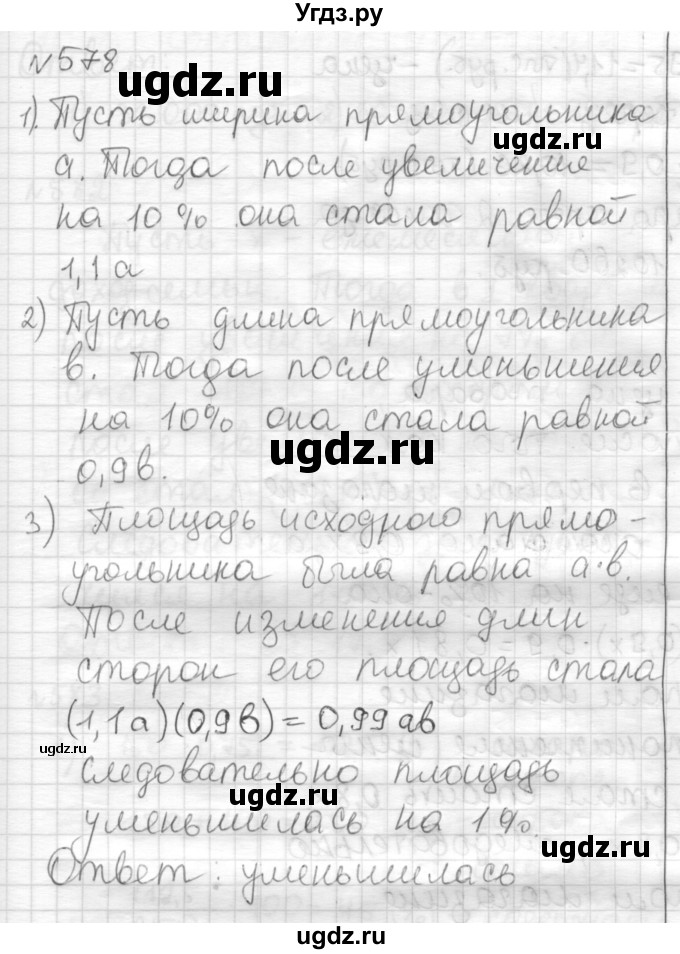 Угдз.ру
№578
ugdz.ru
1). Пусть ширина прямоугольника
ugdz.ru
а. Тогда после увеличения
на 10% она стала равной
ugdz.ru
1,1а
2) Пусть длина прямоугольника
ugdz.ru
в. Тогда после уменьшения
на 10% она стала равной
ugdz.ru
0,9в.
3) Площадь исходного прямо-
ugdz.ru
угольника была равна а·в.
После изменения длин
ugdz.ru
сторон его площадь стала
(1,1а)(0,9в)=0,99ав
ugdz.ru
следовательно площадь
ugdz.ru
уменьшилась на 1%.
ugdz.ru
Ответ: уменьшилась
ugdz.ru